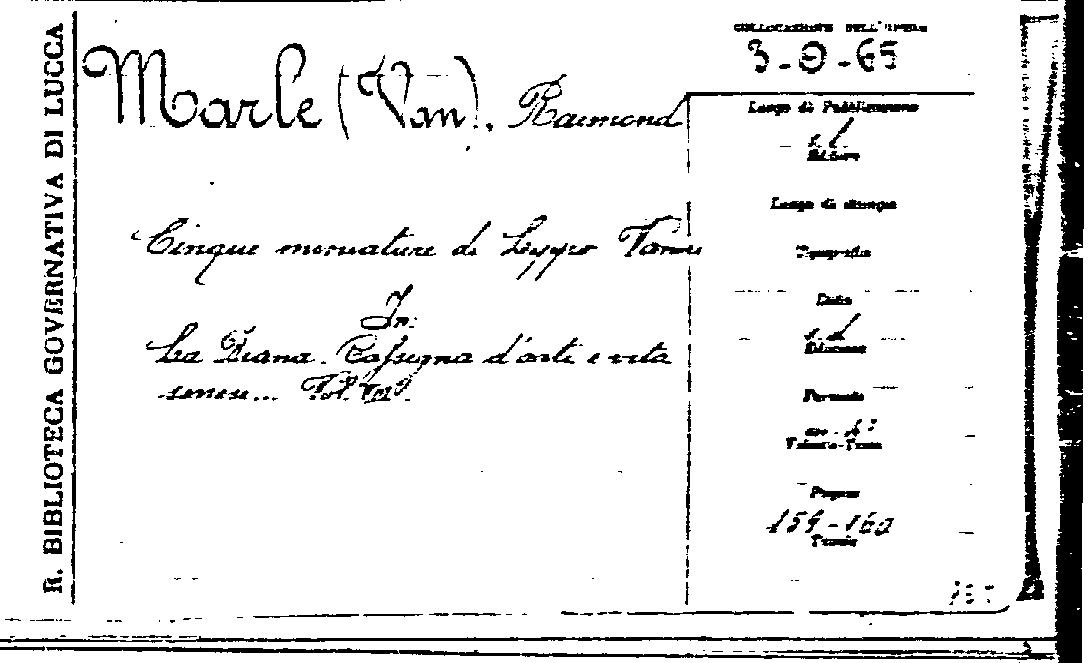 R. BIBLIOTECA GOVERNATIVA DI LUCCA
COLLOCAZIONE DELL'OPERA
3-O-65
Marle (Van), Raimond
Luogo di Pubblicazione
s. l.
Editore
Luogo di stampa
Cinque miniature di Lippo Vanni
Tipografia
Data
In:
s. d.
La Diana. Rassegna d'arte e vita
Edizione
senese... Vol.
Formato
in-4°
Volume-Tomo
Pagine
159-160
Tavole